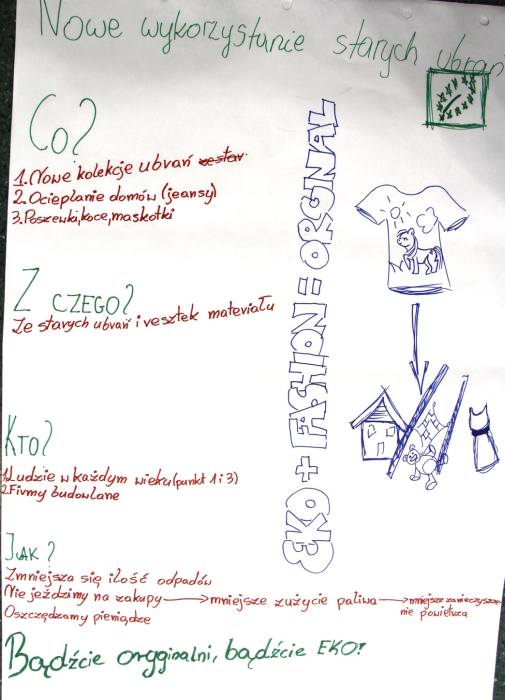 Nowe wykorzystanie starych ubrań
Co?
1. Nowe kolekcje ubrań
2. Ocieplanie domów (jeansy)
3. Poszewki, koce, maskotki
Z CZEGO?
Ze starych ubrań i resztek materiału
KTO?
1. Ludzie w każdym wieku (punkt 1 i 3)
2. Firmy budowlane
JAK?
Zmniejsza się ilość odpadów
Nie jeździmy na zakupy → mniejsze zużycie paliwa → mniejsze zanieczyszcze-
nie powietrza
Oszczędzamy pieniądze
Bądźcie oryginalni, bądźcie EKO!
EKO + FASHION = ORGINAL